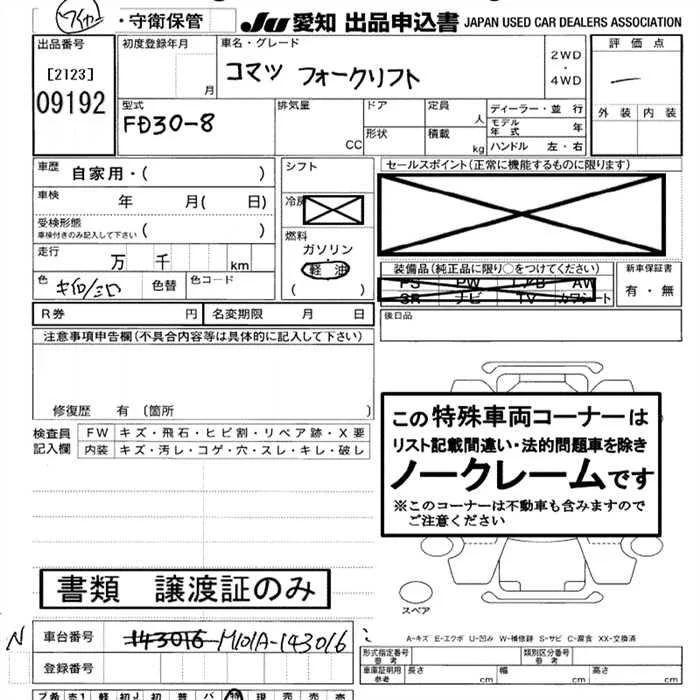 ・守衛保管
JU 愛知 出品申込書 JAPAN USED CAR DEALERS ASSOCIATION
出品番号 初度登録年月 車名・グレード 2WD・4WD 評価点
[2123] 月 コマツ フォークリフト
09192
型式 排気量 ドア 定員 人 ディーラー・並行 外装 内装
FD30-8 CC 形状 積載 kg モデル年式 年
ハンドル 左・右
車歴 自家用・( ) シフト セールスポイント(正常に機能するものに限ります)
車検 年 月( 日)
受検形態 車検付きのみ記入して下さい ( )
燃料 ガソリン・軽油 ( )
走行 万 千 km 装備品(純正品に限り○をつけてください) 新車保証書
PS PW AW
SR ナビ TV カワシート 有・無
色 色替 色コード
R券 円 名変期限 月 日 後日品
注意事項申告欄(不具合内容等は具体的に記入して下さい)
修復歴 有 (箇所 )
検査員記入欄 FW キズ・飛石・ヒビ割・リペア跡・X要
内装 キズ・汚レ・コゲ・穴・スレ・キレ・破レ
この特殊車両コーナーは
リスト記載間違い・法的問題車を除き
ノークレームです
※このコーナーは不動車も含みますので
ご注意ください
書類 譲渡証のみ
スペア
N 車台番号 143016 M101A-143016
A-キズ E-エクボ U-凹み W-補修跡 S-サビ C-腐食 XX-交換済
登録番号
型式指定番号 参考 類別区分番号 参考
車庫証明用 参考 長さ cm 幅 cm 高さ cm